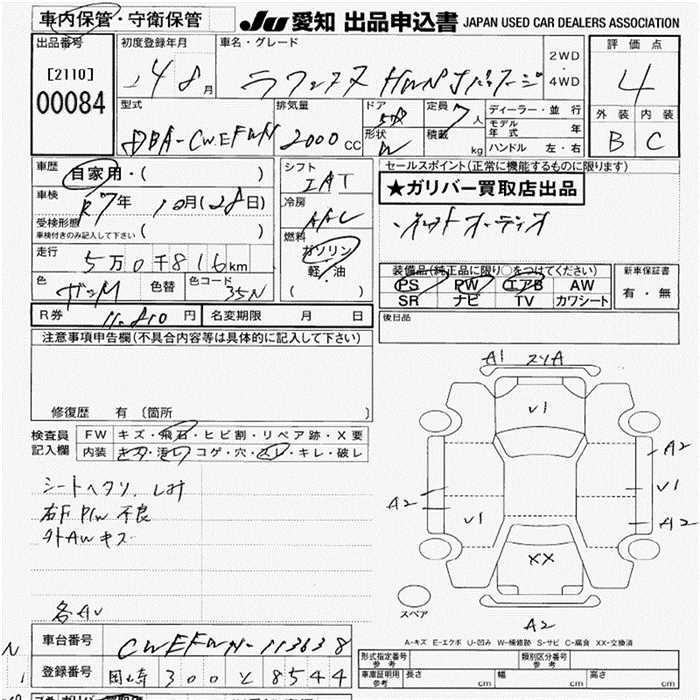 車内保管・守衛保管
JU 愛知 出品申込書 JAPAN USED CAR DEALERS ASSOCIATION
出品番号
[2110]
00084
初度登録年月
24 8 月
車名・グレード
ラフェスタ HWS Jパッケージ
2WD
・
4WD
評価点
4
外装 内装
B C
型式
DBA-CWEFWN
排気量
2000 CC
ドア
5D
形状
W
定員
7 人
積載
kg
ディーラー・並行
モデル
年式 年
ハンドル 左・右
車歴
自家用・( )
車検
R7年 10月(28日)
受検形態
車検付きのみ記入して下さい ( )
走行
5万0千816km
色
ガンM
色替
色コード
35N
シフト
IAT
冷房
AAC
燃料
ガソリン
軽・油
( )
セールスポイント(正常に機能するものに限ります)
★ガリバー買取店出品
・ネットオーディオ
装備品(純正品に限り○をつけてください)
PS PW エアB AW
SR ナビ TV カワシート
新車保証書
有・無
後日品
R券 11,810 円
名変期限 月 日
注意事項申告欄(不具合内容等は具体的に記入して下さい)
修復歴 有 〔箇所 〕
検査員
記入欄
FW キズ・飛石・ヒビ割・リペア跡・X要
内装 キズ・汚レ・コゲ・穴・スレ・キレ・破レ
シートヘタリ、しみ
右F P/W 不良
外AWキズ
各AU
A1 スリA
V1
A2
V1
A2
A2
V1
XX
A2
スペア
A-キズ E-エクボ U-凹み W-補修跡 S-サビ C-腐食 XX-交換済
車台番号 CWEFWN-113638
登録番号 300 と 8544
形式指定番号
参考
類別区分番号
参考
車庫証明用
参考
長さ cm 幅 cm 高さ cm